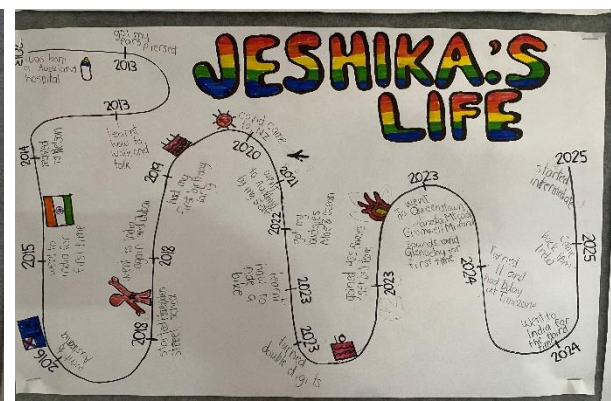 JESHIKA'S
LIFE
was born
Auckland
hospital
got my
ears
piersed
2013
2013
learnt
how to
walk and
talk
2014
moved
to Nelson
2015
went to
India for
first time
2016
went to
2018
started
street school
2018
went to India
again and Dubai
2019
had my
first birthday
party
2020
covid came
to NZ
2021
went
by my self
2022
got my
budgies
2023
learnt
how to
ride a
bike
2023
turned
double digits
2023
2023
went
to Queenstown
Wanaka
Cromwell
sounds and
Glenorchy for
first time
2024
turned 11 and
had bday
at timezone
2024
went to
India for
the third
time
2025
came
back from
India
2025
started
intermediate